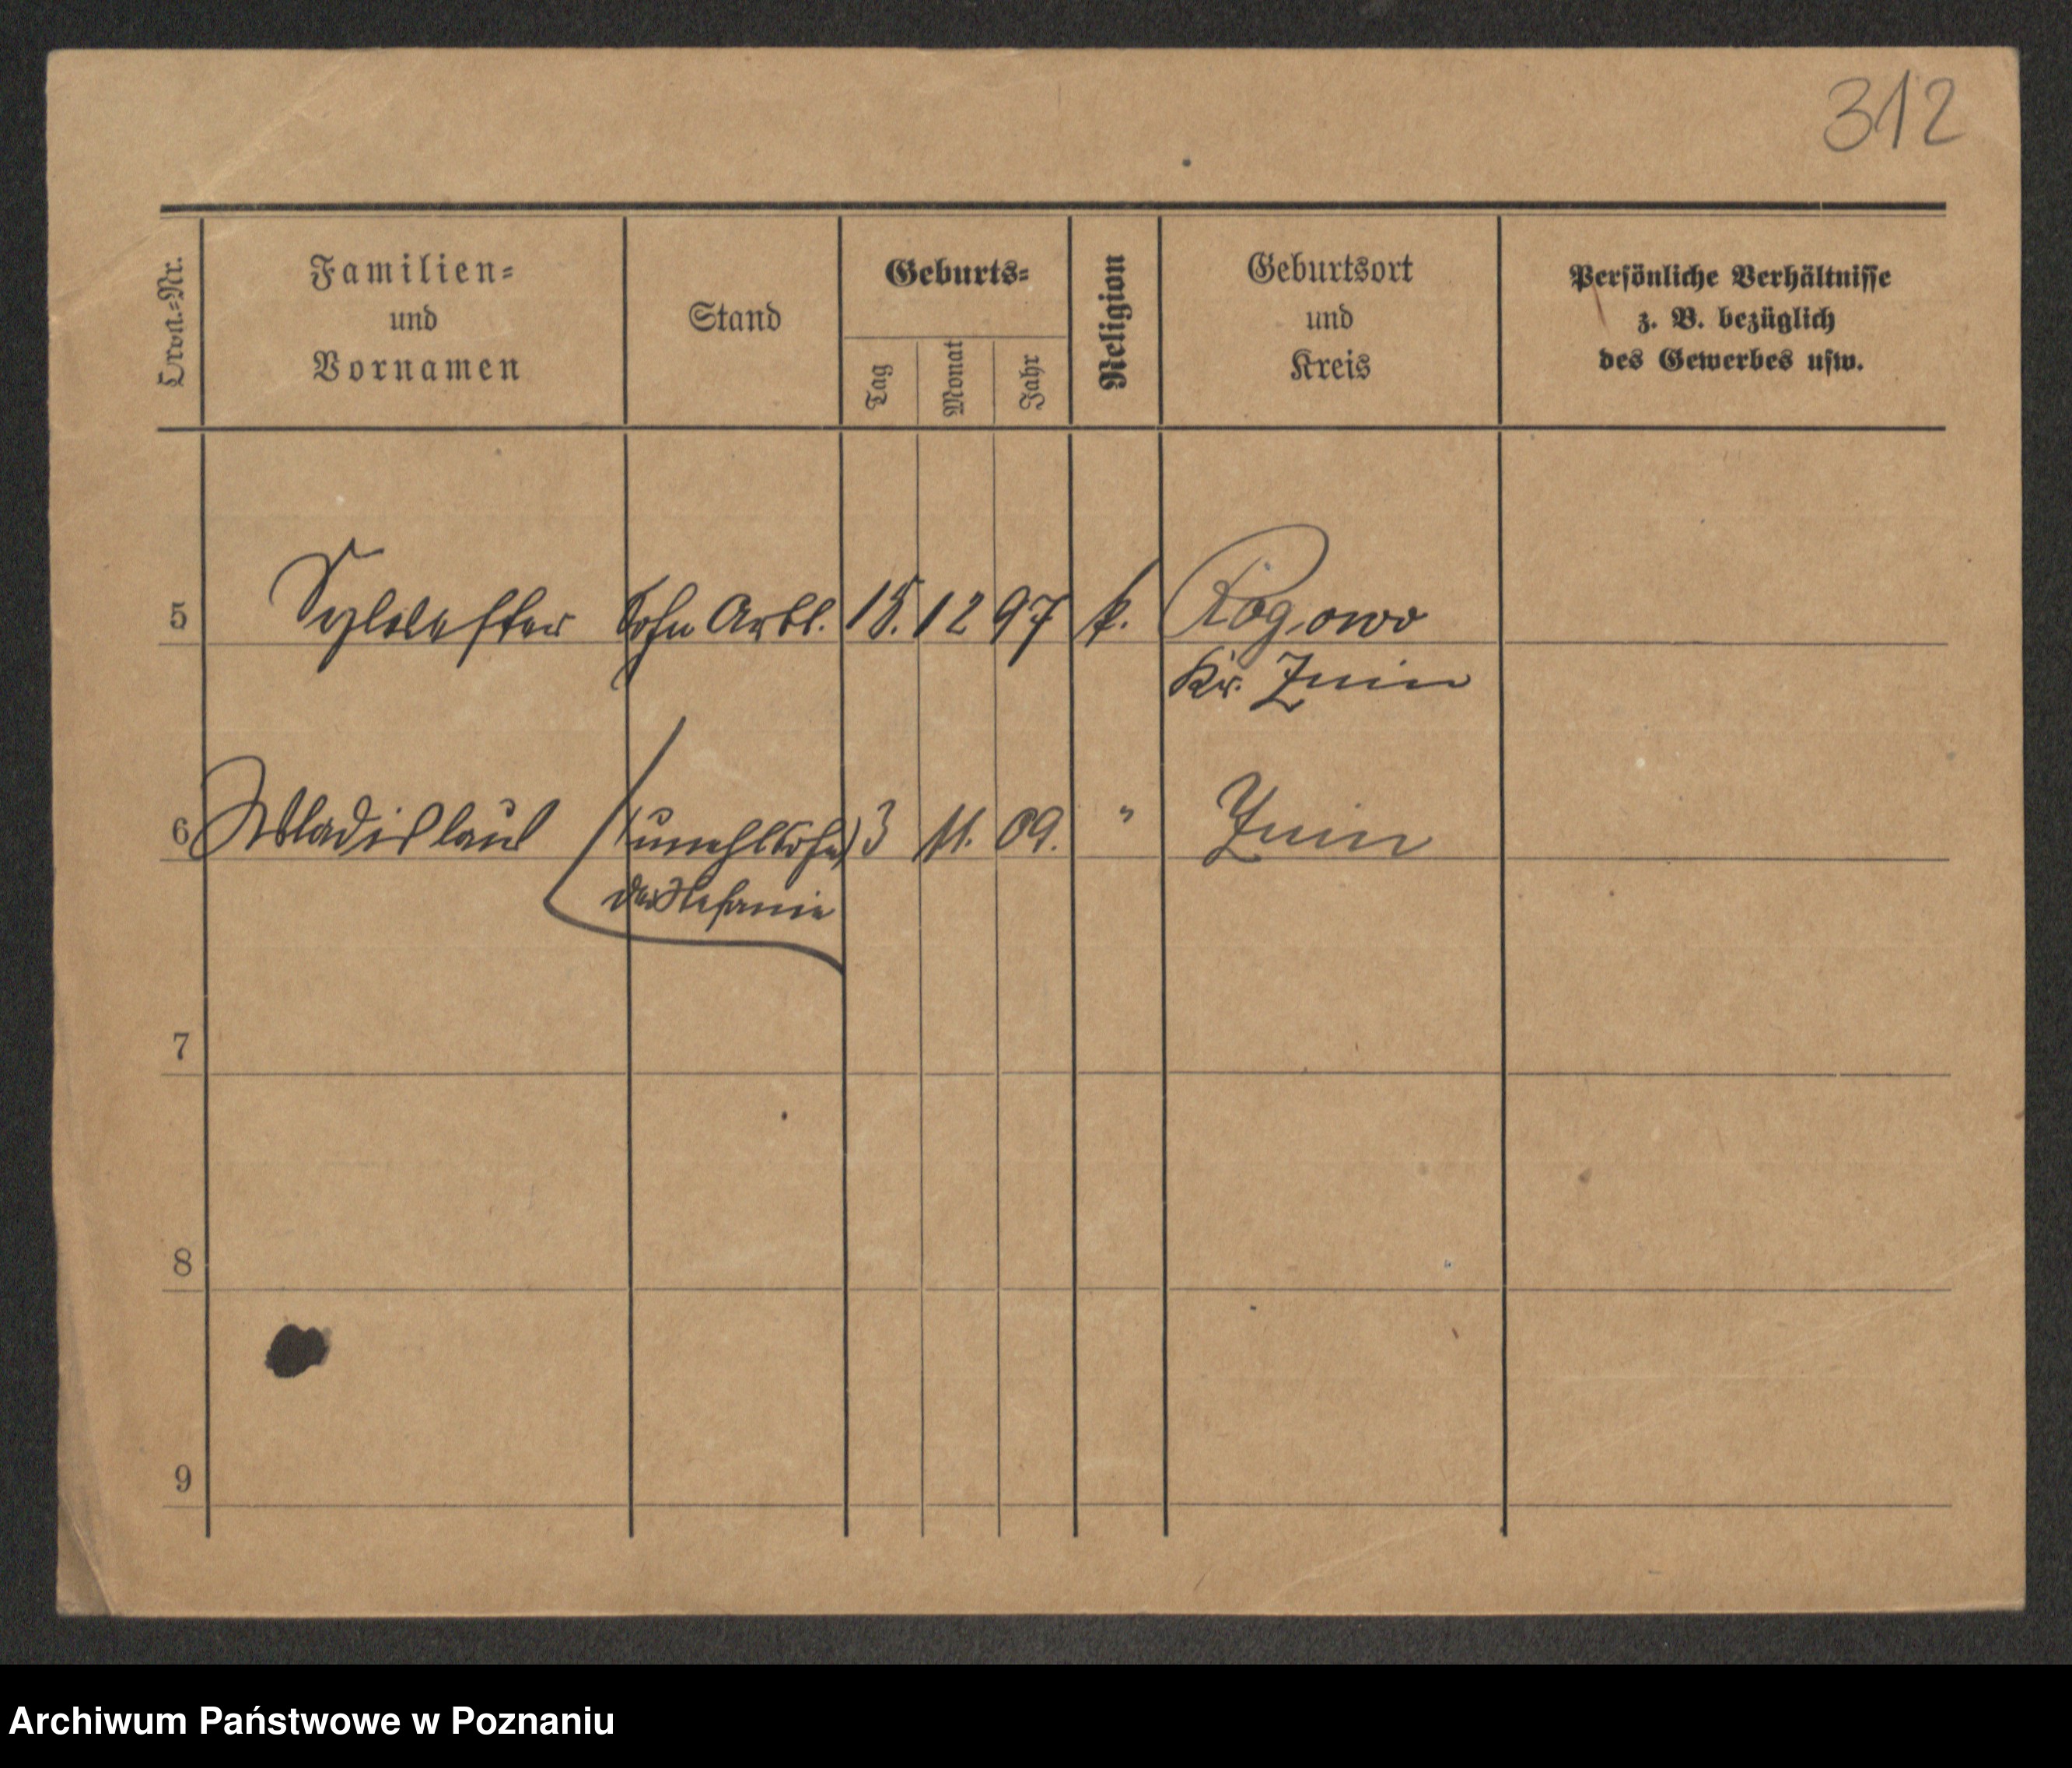 312
Ordn.-Nr.
Familien-
und
Vornamen
Stand
Geburts-
Tag
Monat
Jahr
Religion
Geburtsort
und
Kreis
Persönliche Verhältnisse
z. B. bezüglich
des Gewerbes usw.
5 Sylvester Sohn Arbt. 15. 12 97 k. Rogowo
Kr. Znin
6 Wladislaus (unehl Sohn) 3 11. 09. " Znin
der Stefanie
7
8
9
Archiwum Państwowe w Poznaniu